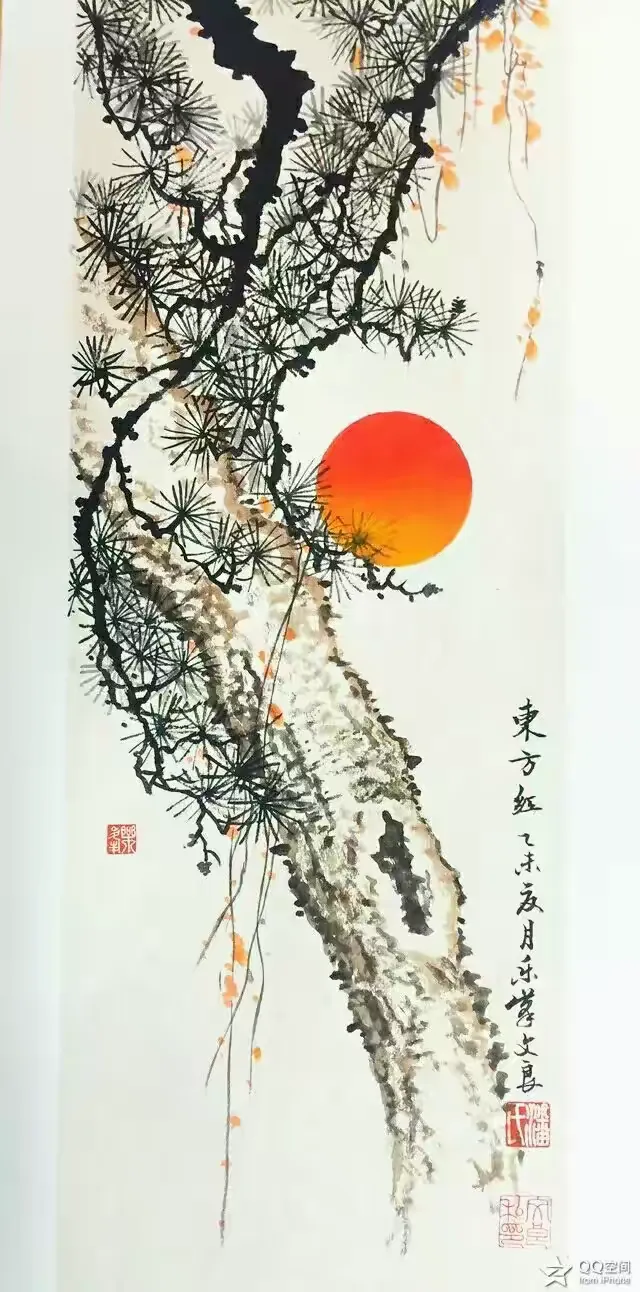 東方红 乙未夏月乐文良
潘氏
QQ空间
from iPhone